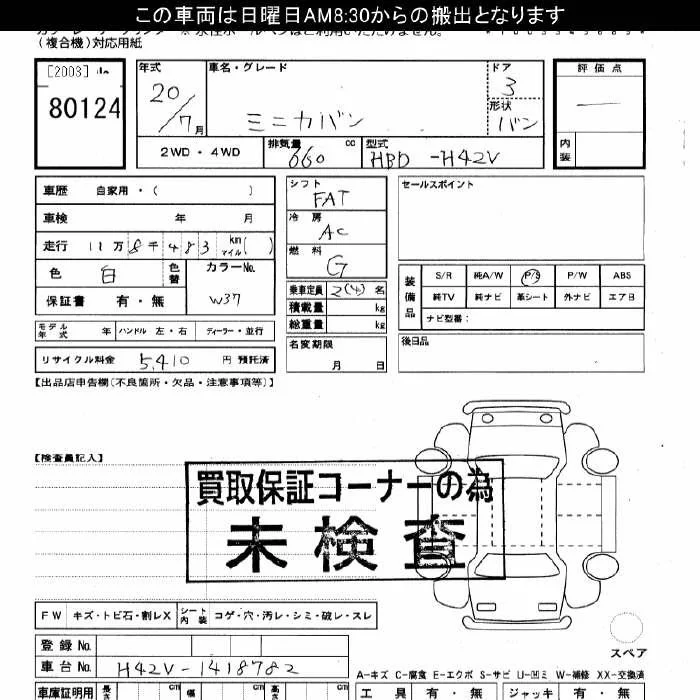 この車両は日曜日AM8:30からの搬出となります
(複合機)対応用紙
[2003]
80124
年式 車名・グレード ドア 評価点
20/7月 ミニカバン 3
形状 バン
2WD・4WD 排気量 660 cc 型式 HBD-H42V
内装
車歴 自家用・( )
車検 年 月
走行 11万8千483km マイル( )
色 白 色替 カラーNo. W37
保証書 有・無
シフト FAT
冷房 AC
燃料 G
乗車定員 2(4)名
積載量 kg
総重量 kg
名変期限 月 日
セールスポイント
装備品 S/R 純A/W P/S P/W ABS
純TV 純ナビ 革シート 外ナビ エアB
ナビ型番:
後日品
モデル年式 年 ハンドル 左・右 ディーラー・並行
リサイクル料金 5,410 円 預託済
【出品店申告欄(不良箇所・欠品・注意事項等)】
【検査員記入】
買取保証コーナーの為
未検査
FW キズ・トビ石・割レX シート内装 コゲ・穴・汚レ・シミ・破レ・スレ
スペア
登録No.
車台No. H42V-1418782
A-キズ C-腐食 E-エクボ S-サビ U-凹ミ W-補修 XX-交換済
車庫証明用 長さ cm 幅 cm 高さ cm 工具 有・無 ジャッキ 有・無